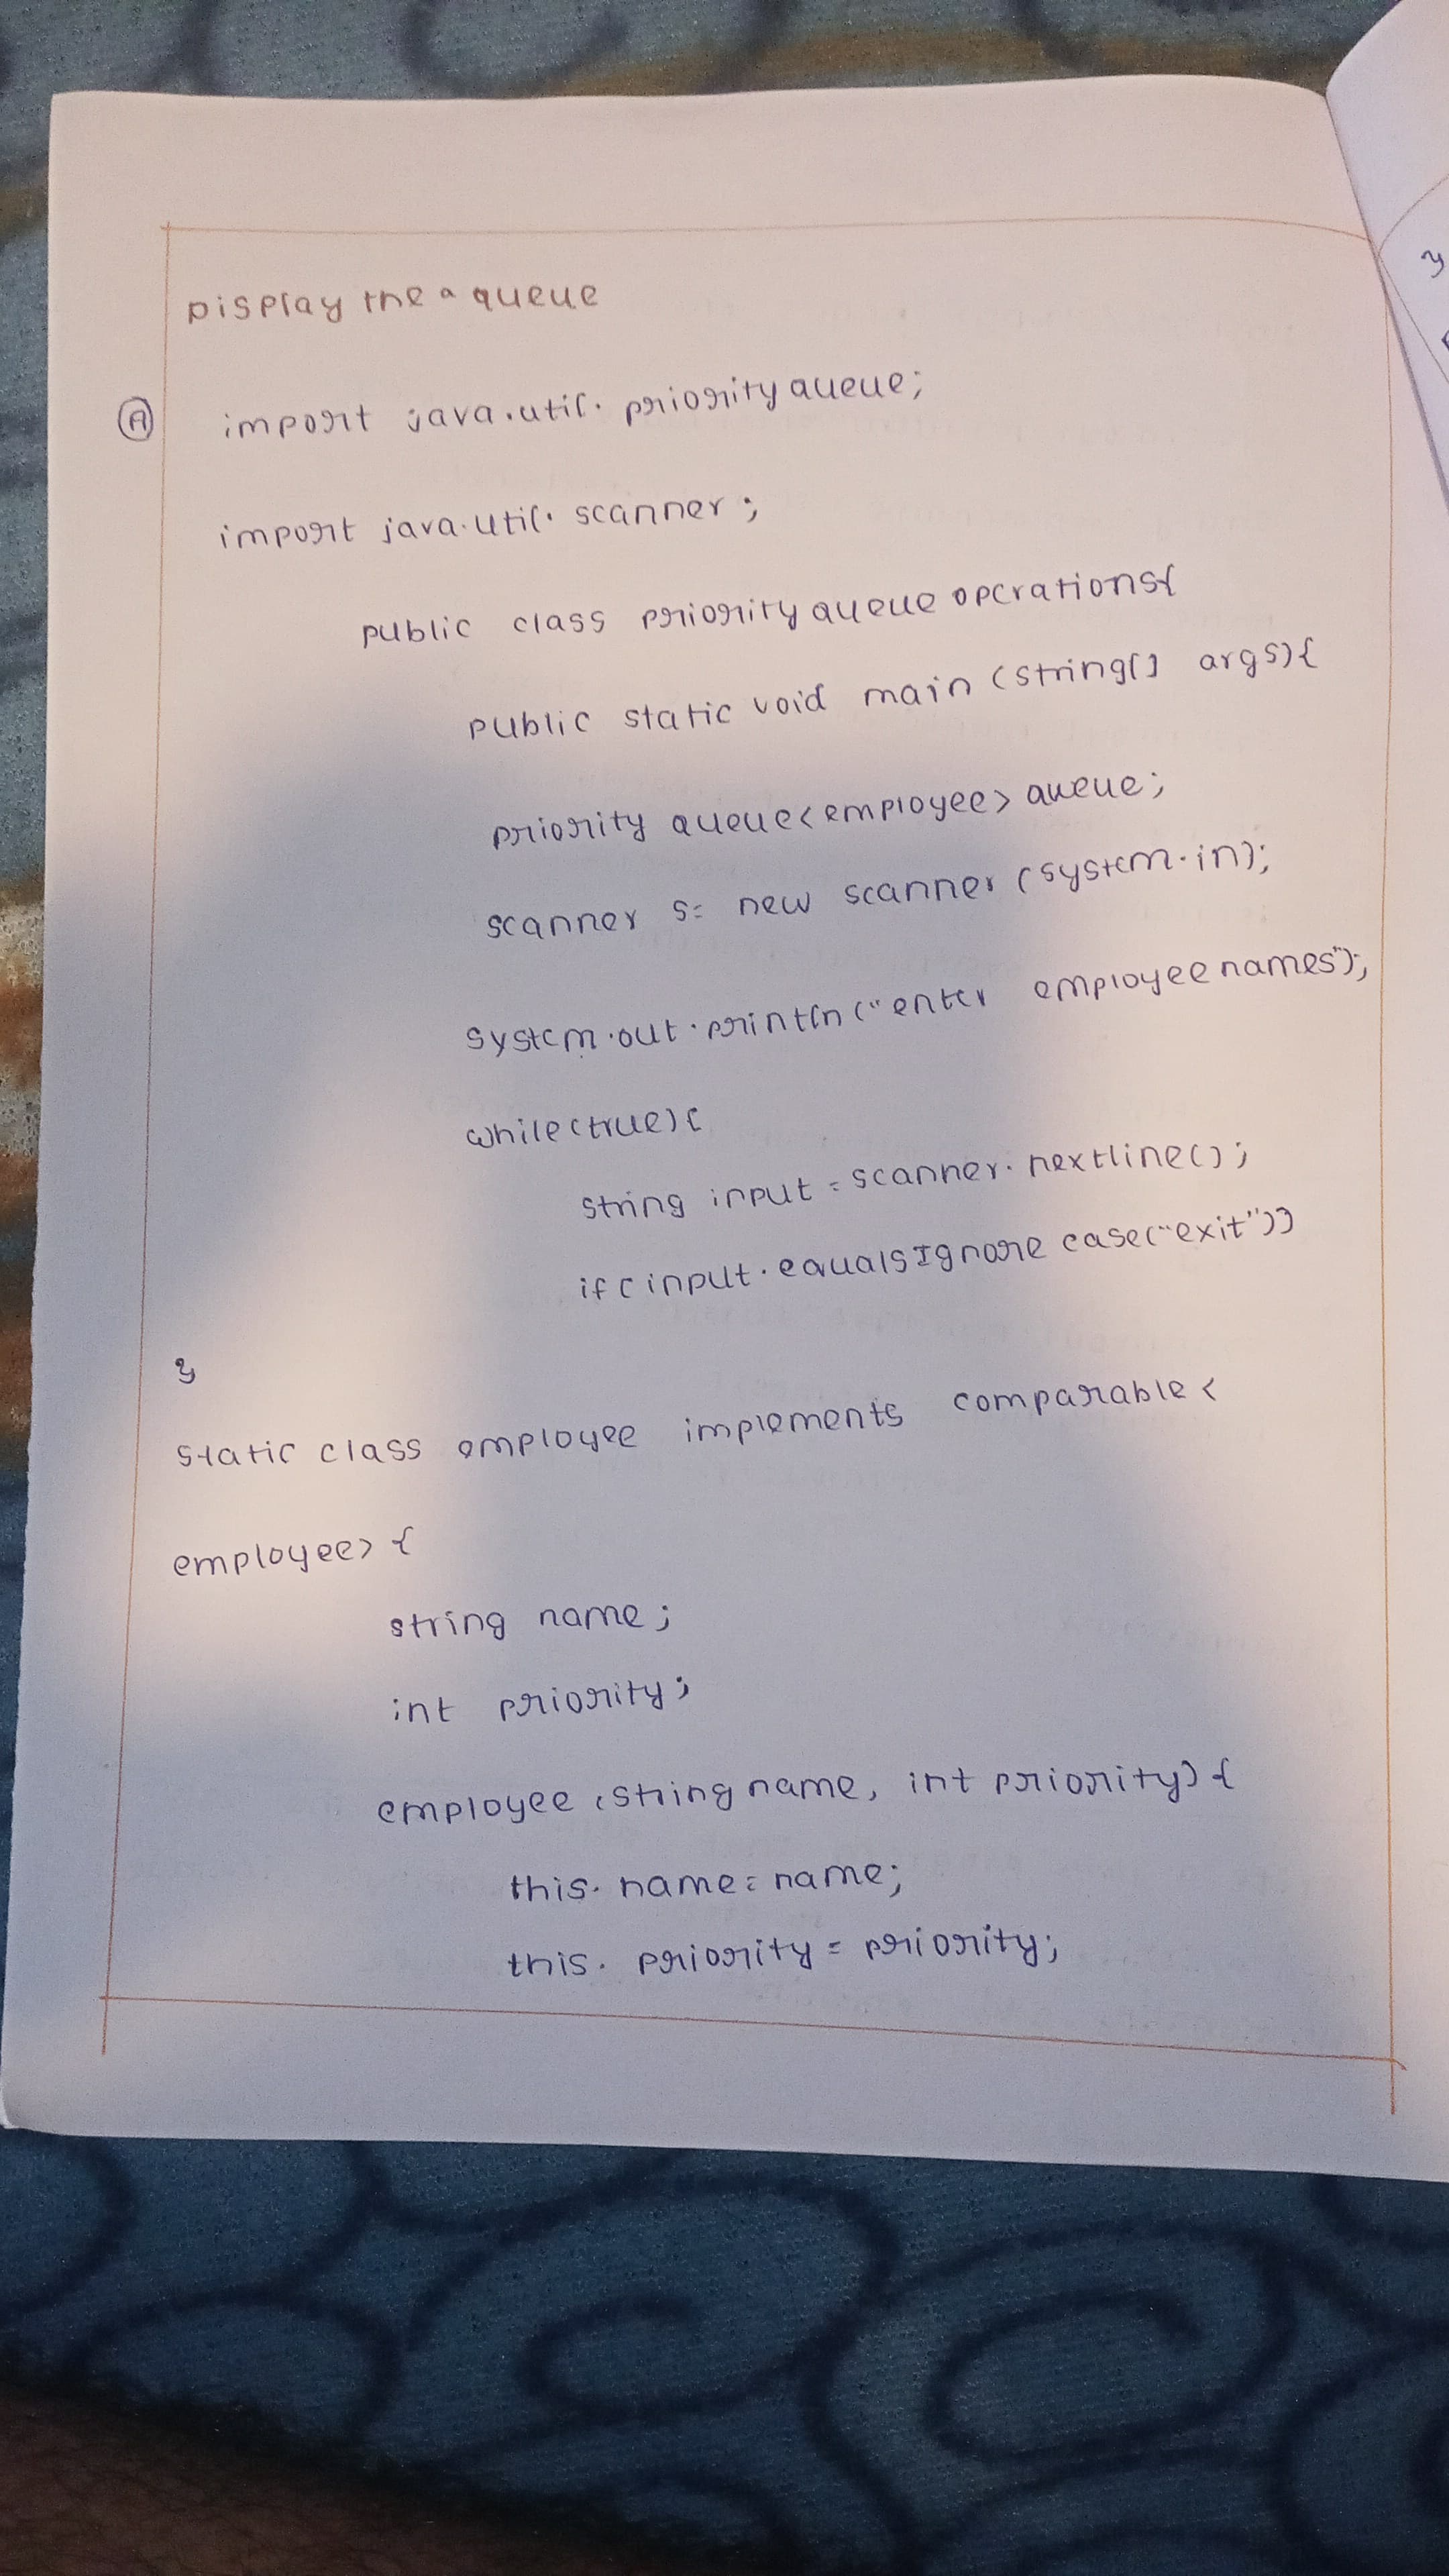 Display the a queue
A import java.util.priorityqueue;
import java.util.scanner;
public class priorityqueue operations{
public static void main (string[] args){
priority queue<employee> queue;
scanner s= new scanner (system.in);
system.out.println ("enter employee names");
while(true){
string input = scanner.nextline();
if (input.equalsIgnore case("exit"))
}
static class employee implements comparable <
employee> {
string name;
int priority;
employee (string name, int priority) {
this.name=name;
this.priority = priority;
y